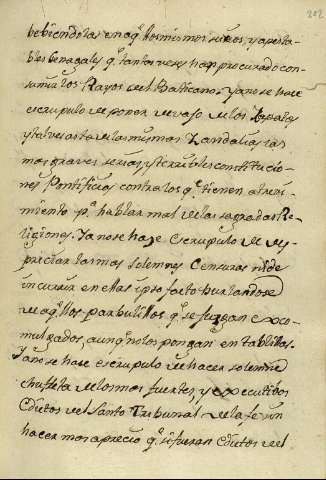 202
bebiendolas en aq.llos mismos sucos, y apesta
bles benagales q.e tantas veses han procurado con
sumir los Rayos del Baticano. Ya no se hace
escrupulo de poner devajo de los Zapatos
y tal vez a tas de las mismas Zandalias las
mas graves serias y terribles constitucio
nes Pontificias contra los q.e tienen atrevi
miento p.a hablar mal de las sagradas Re
ligiones. Ya no se hase escrupulo de des
preciar las mas solemnes Censuras ni de
incurrir en ellas ipso facto burlandose
de aq.llos parbulillos q.e se jusgan exco
mulgados, aunq.e no los pongan en tablillas.
Ya no se hase escrupulo de hacer solemne
chufleta de los mas fuertes, y executibos
Edictos del Santo Tribunal de la fee sin
hacer mas aprecio q.e si fueran Edictos del